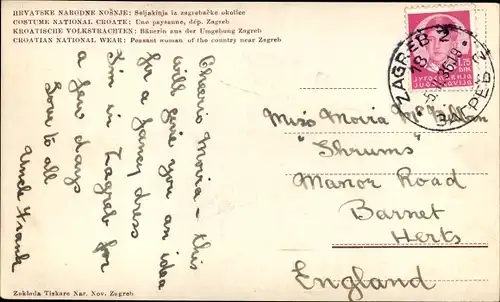 HRVATSKE NARODNE NOŠNJE: Seljakinja iz zagrebačke okolice
COSTUME NATIONAL CROATE: Une paysanne, dép. Zagreb
KROATISCHE VOLKSTRACHTEN: Bäuerin aus der Umgebung Zagreb
CROATIAN NATIONAL WEAR: Peasant woman of the country near Zagreb
Cheerio Moira - this
will give you an idea
for a fancy dress
I'm in Zagreb for
a few days
Love to all
Uncle Frank
Zaklada Tiskare Nar. Nov. Zagreb
ZAGREB 2
ЗАГРЕБ 2
1.75
DIN.
ЈУГОСЛАВИЈА
JUGOSLAVIJA
Miss Moira
"Shrums"
Manor Road
Barnet
Herts
England